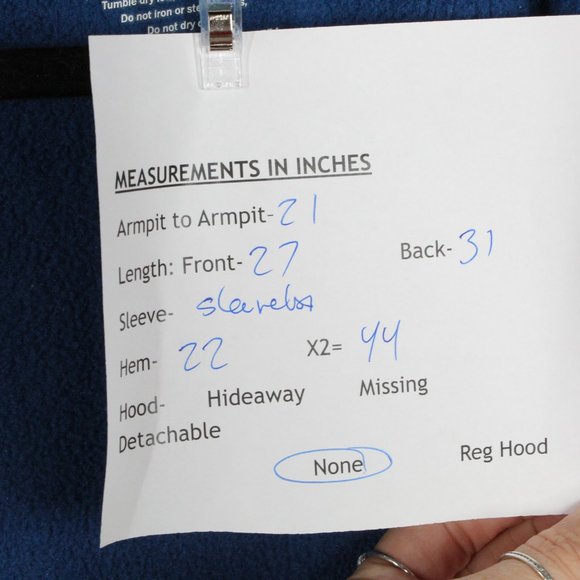 Tumble dry
Do not iron or ste
Do not dry
MEASUREMENTS IN INCHES
Armpit to Armpit- 21
Length: Front- 27 Back- 31
Sleeve- sleeveless
Hem- 22 X2= 44
Hood- Hideaway Missing
Detachable
None Reg Hood